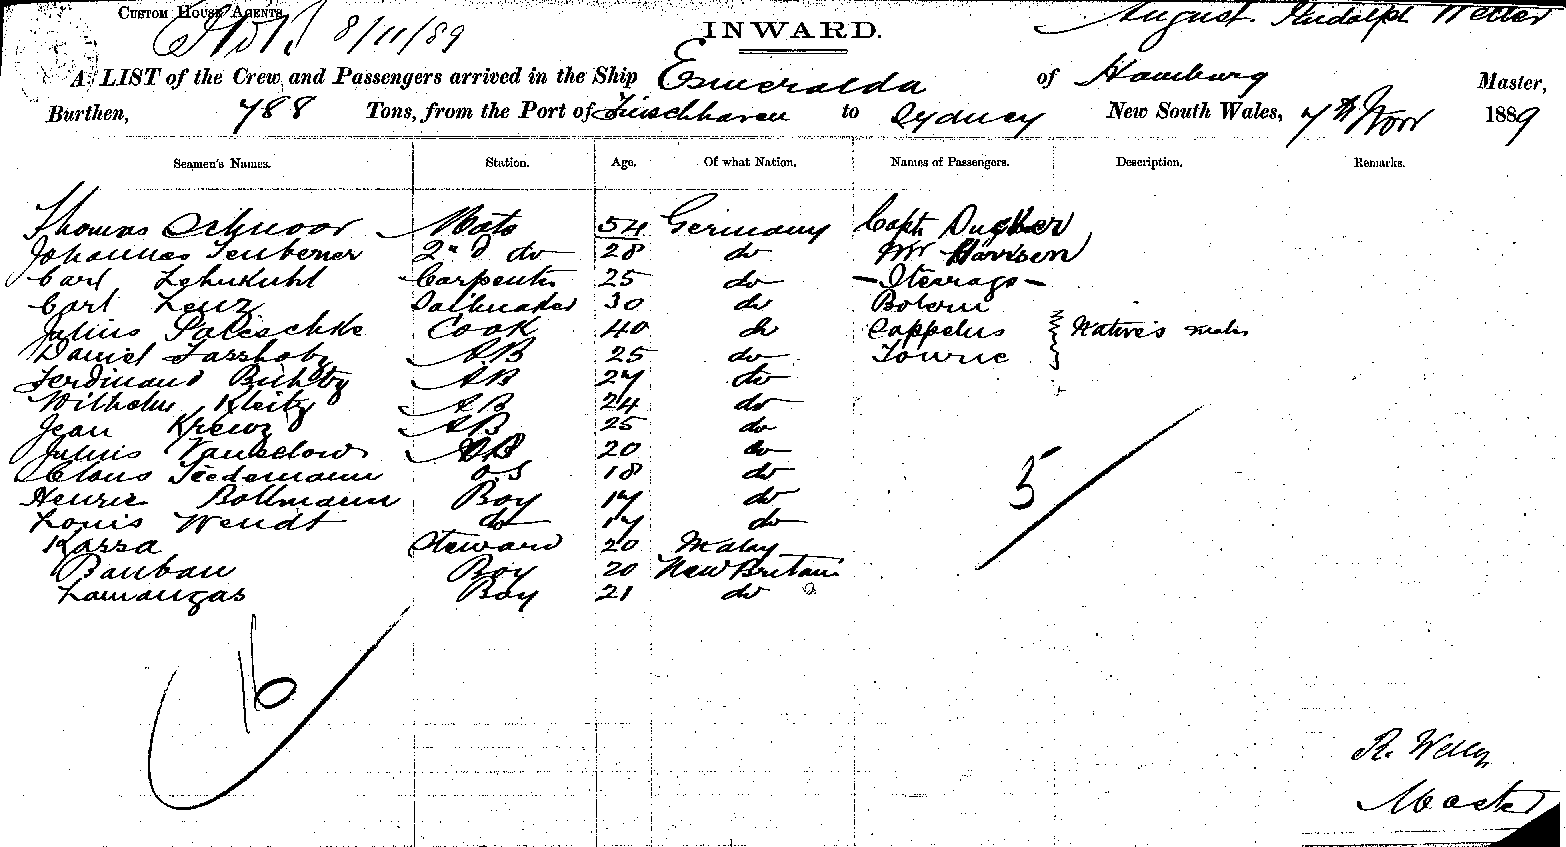 CUSTOM HOUSE AGENTS
8/11/89
INWARD.
August Rudolph
A LIST of the Crew and Passengers arrived in the Ship Esmeralda of Hamburg Master,
Burthen, 788 Tons, from the Port of Finschhaven to Sydney New South Wales, 7th Novr 1889
Seamen's Names. Station. Age. Of what Nation. Names of Passengers. Description. Remarks.
Thomas Schnoor Mate 54 Germany Capt
Johannes Teubener 2nd do 28 do Mr Harrison
Carl Lehnkuhl Carpenter 25 do - Steerage -
Carl Lenz Sailmaker 30 do
Julius Paleschke Cook 40 do Cappelus Natives males
Daniel AB 25 do Towrie
Ferdinand AB 27 do
Wilhelm Kleitz AB 24 do
Jean Krewz AB 25 do
Julius Vanselow AB 20 do
Claus Tiedemann OS 18 do
Henrie Bollmann Boy 17 do
Louis Wendt do 17 do
Kassa Steward 20 Malay
Banbau Boy 20 New Britain
Lamangas Boy 21 do
5
16
R.
Master